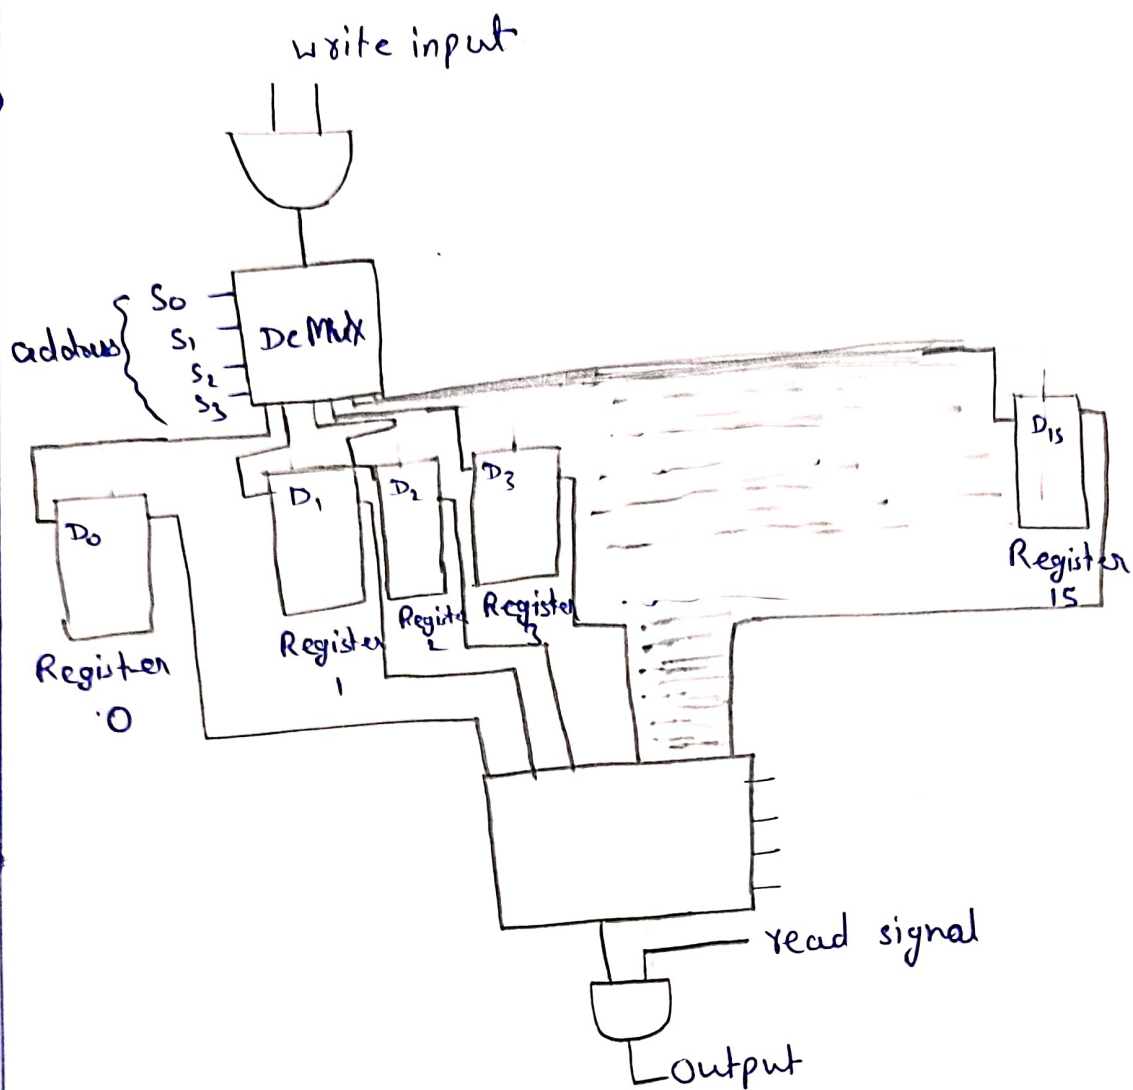 write input
So
S1
address
S2
S3
DeMux
D0
D1
D2
D3
D15
Register
0
Register
1
Register
2
Register
3
Register
15
read signal
output